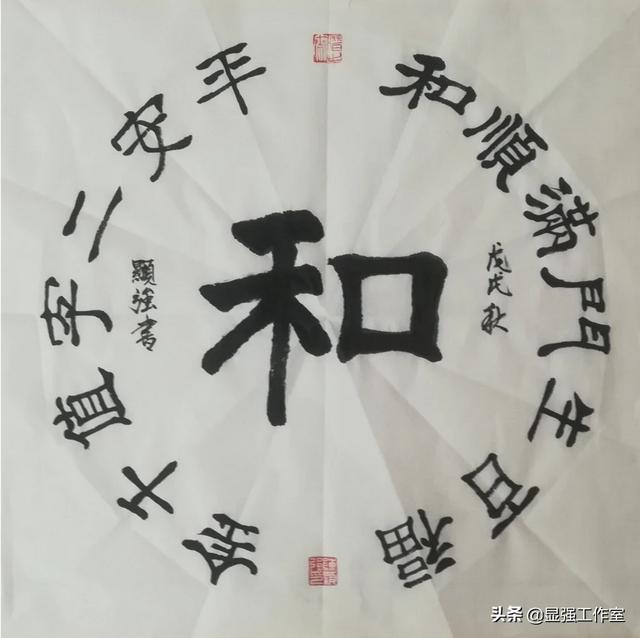 和順滿門生百福
平安二字值千金
和
戊戌秋
顯强書
头条 @显强工作室